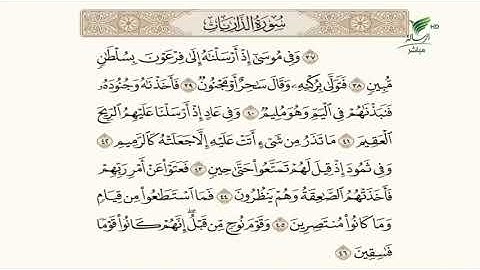 سورة الذاريات
HD
الرسالة
مباشر
٣٧ وَفِي مُوسَىٰٓ إِذْ أَرْسَلْنَٰهُ إِلَىٰ فِرْعَوْنَ بِسُلْطَٰنٍ
مُّبِينٍ ٣٨ فَتَوَلَّىٰ بِرُكْنِهِۦ وَقَالَ سَٰحِرٌ أَوْ مَجْنُونٌ ٣٩ فَأَخَذْنَٰهُ وَجُنُودَهُۥ
فَنَبَذْنَٰهُمْ فِي ٱلْيَمِّ وَهُوَ مُلِيمٌ ٤٠ وَفِي عَادٍ إِذْ أَرْسَلْنَا عَلَيْهِمُ ٱلرِّيحَ
ٱلْعَقِيمَ ٤١ مَا تَذَرُ مِن شَيْءٍ أَتَتْ عَلَيْهِ إِلَّا جَعَلَتْهُ كَٱلرَّمِيمِ ٤٢
وَفِي ثَمُودَ إِذْ قِيلَ لَهُمْ تَمَتَّعُوا۟ حَتَّىٰ حِينٍ ٤٣ فَعَتَوْا۟ عَنْ أَمْرِ رَبِّهِمْ
فَأَخَذَتْهُمُ ٱلصَّٰعِقَةُ وَهُمْ يَنظُرُونَ ٤٤ فَمَا ٱسْتَطَٰعُوا۟ مِن قِيَامٍ
وَمَا كَانُوا۟ مُنتَصِرِينَ ٤٥ وَقَوْمَ نُوحٍ مِّن قَبْلُ ۖ إِنَّهُمْ كَانُوا۟ قَوْمًا
فَٰسِقِينَ ٤٦